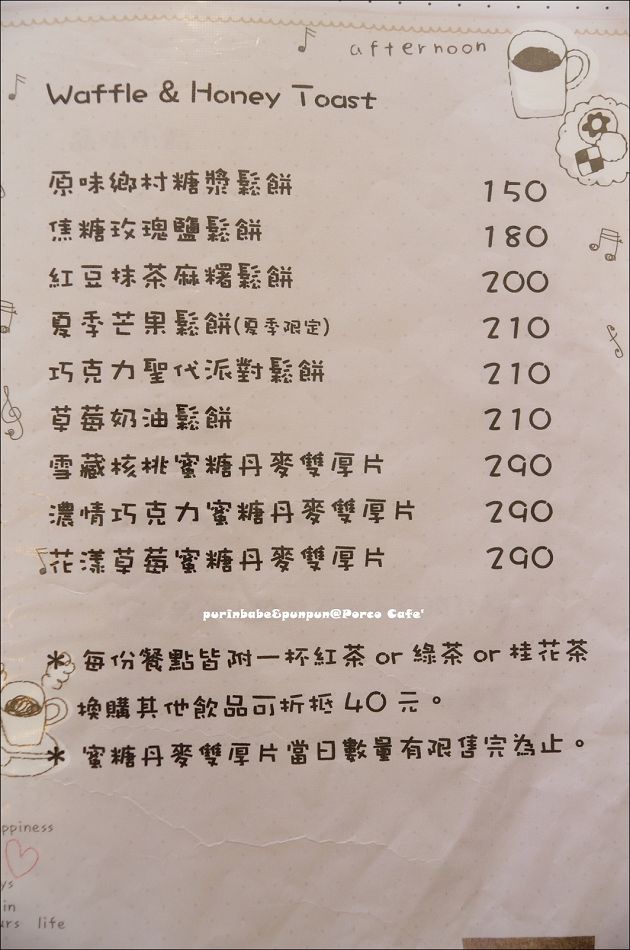 afternoon
Waffle & Honey Toast
原味鄉村糖漿鬆餅 150
焦糖玫瑰鹽鬆餅 180
紅豆抹茶麻糬鬆餅 200
夏季芒果鬆餅(夏季限定) 210
巧克力聖代派對鬆餅 210
草莓奶油鬆餅 210
雪藏核桃蜜糖丹麥雙厚片 290
濃情巧克力蜜糖丹麥雙厚片 290
花漾草莓蜜糖丹麥雙厚片 290
purinbabe&punpun@Porco Cafe'
* 每份餐點皆附一杯紅茶 or 綠茶 or 桂花茶
換購其他飲品可折抵 40 元。
* 蜜糖丹麥雙厚片當日數量有限售完為止。
ppiness
ys
in
urs life